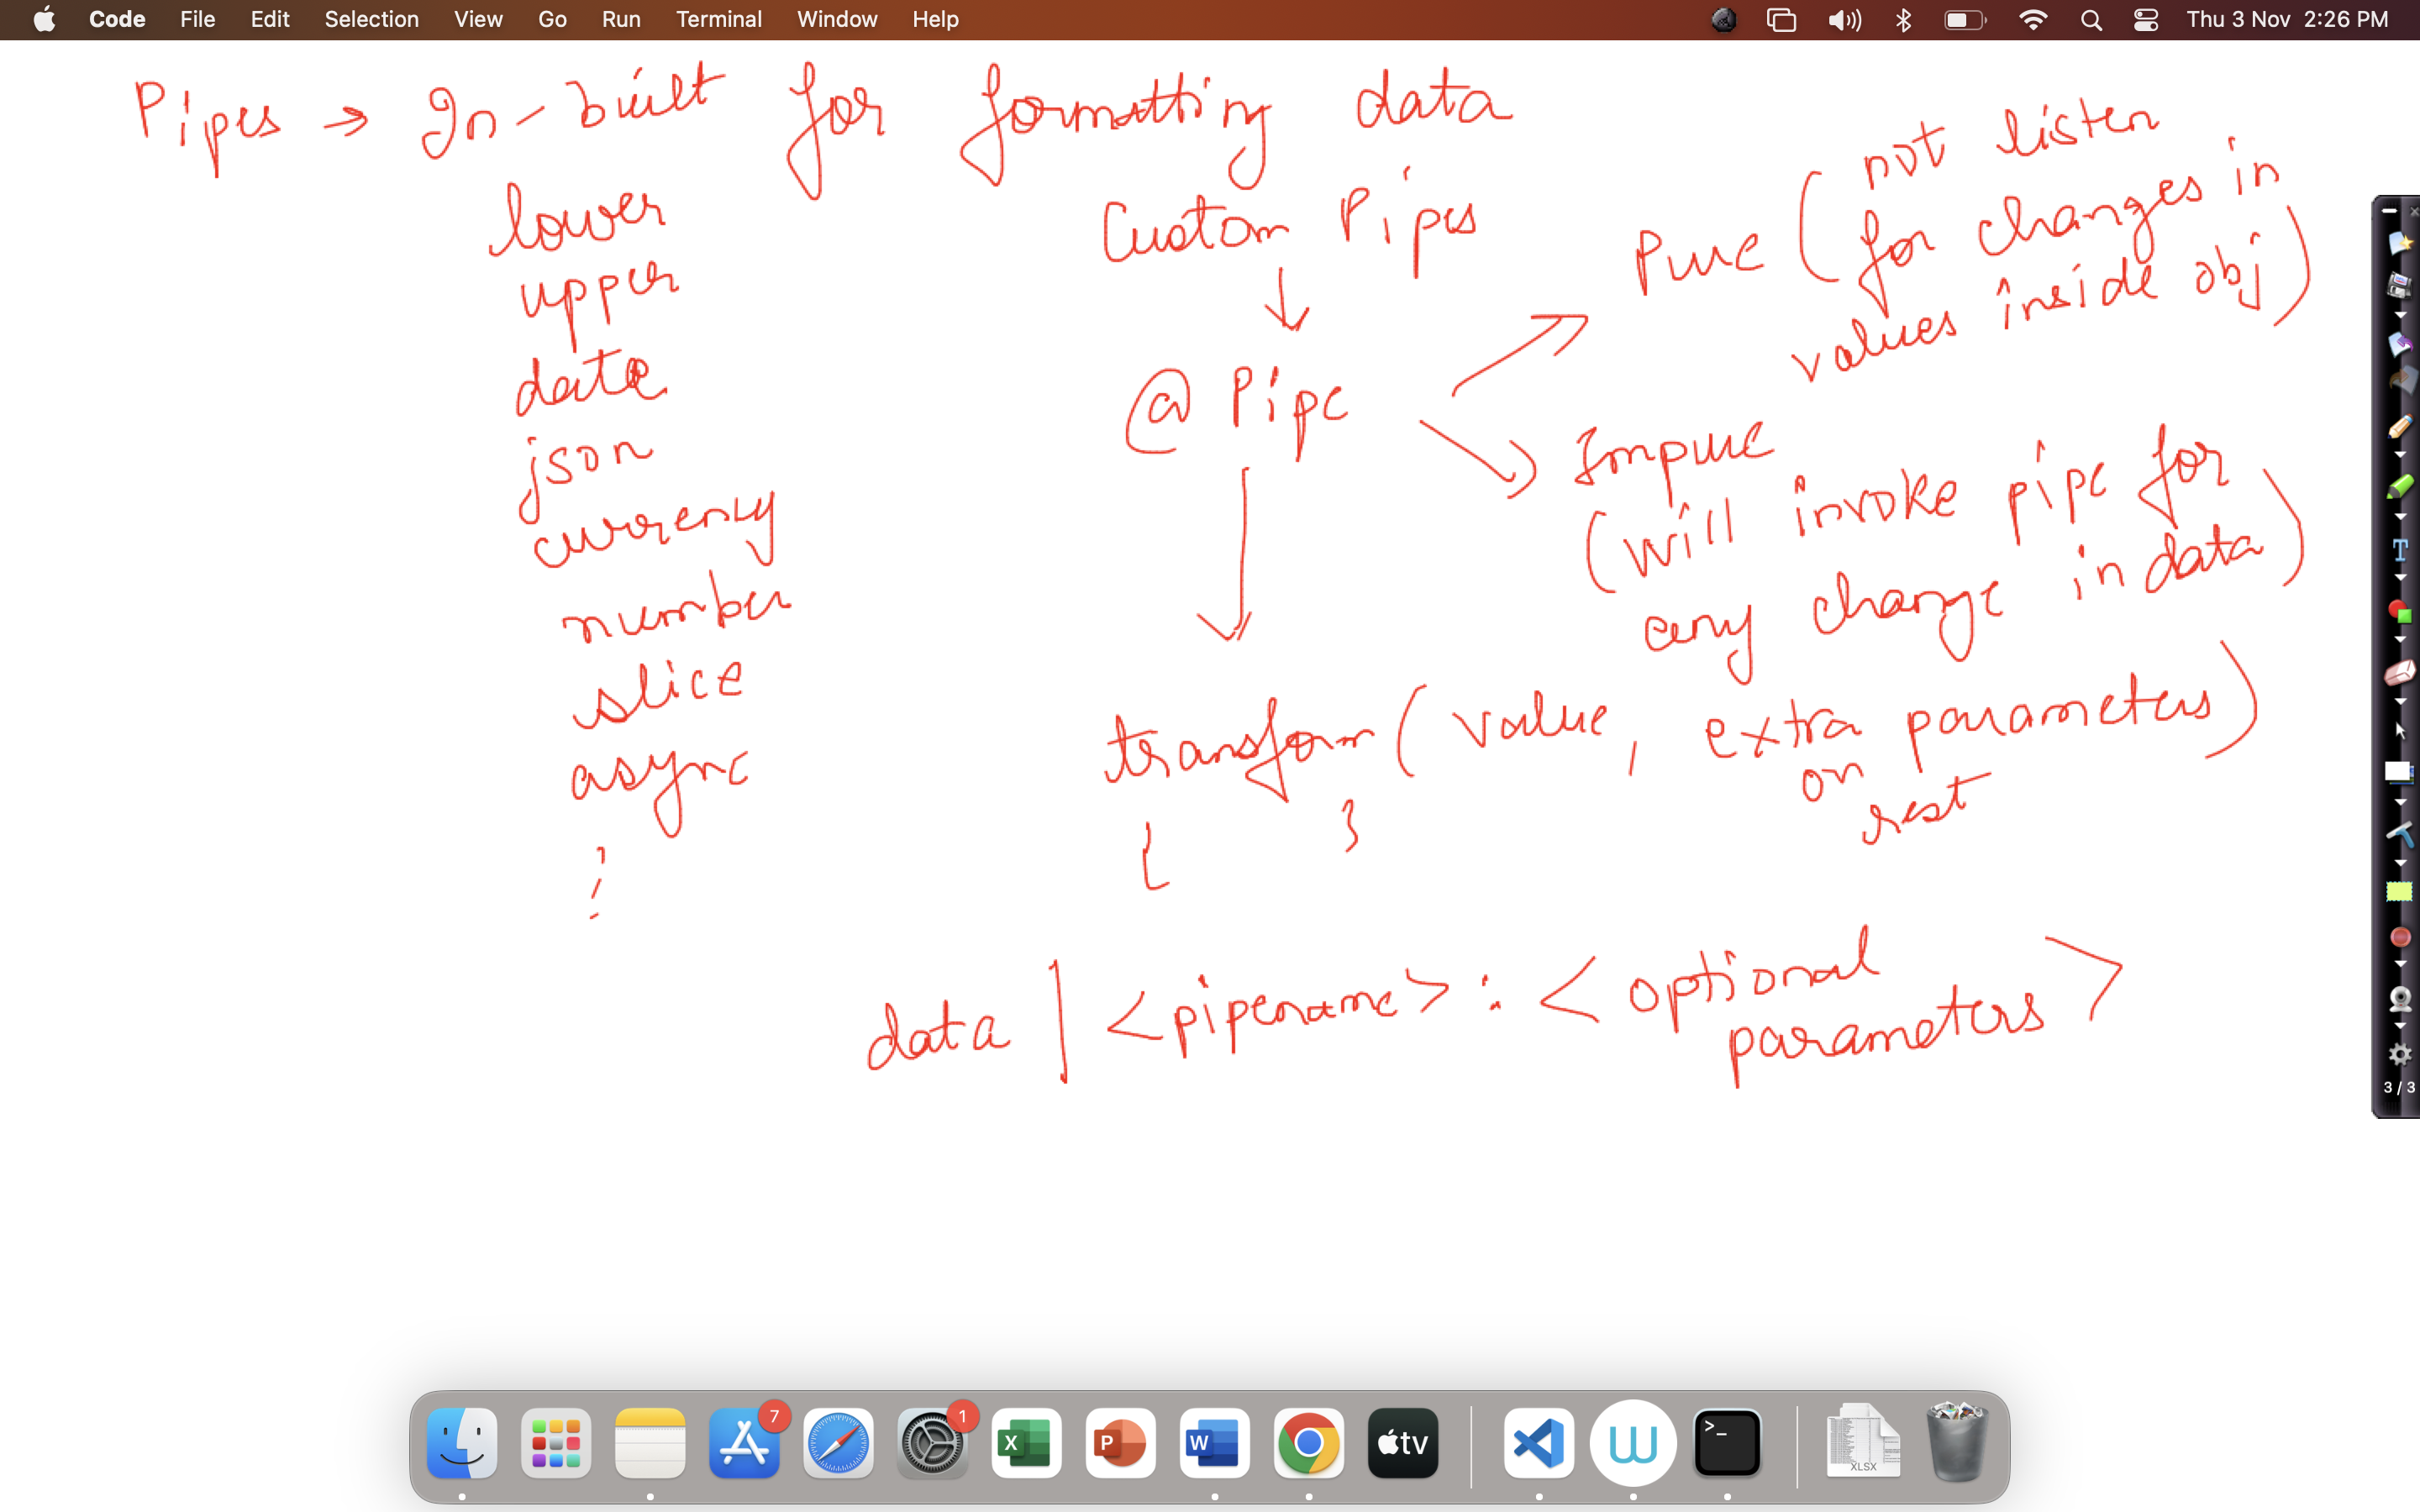 Code File Edit Selection View Go Run Terminal Window Help Thu 3 Nov 2:26 PM
Pipes → In-built for formatting data
lower
upper
date
json
currency
number
slice
async
Custom Pipes
@ Pipe
Pure (not listen
for changes in
values inside obj)
Impure
(will invoke pipe for
any change in data)
transform (value, extra parameters)
on
rest
{ }
data | <pipename> : <optional
parameters>
T
3 / 3
7
1
X
P
W
tv
W
>_
XLSX